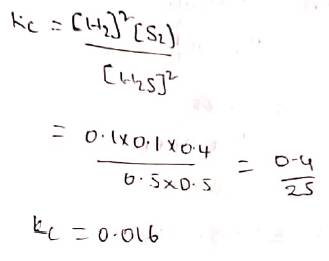 Kc = [H2]² [S2]
[H2S]²
= 0.1x0.1x0.4 / 0.5x0.5 = 0.4 / 25
Kc = 0.016